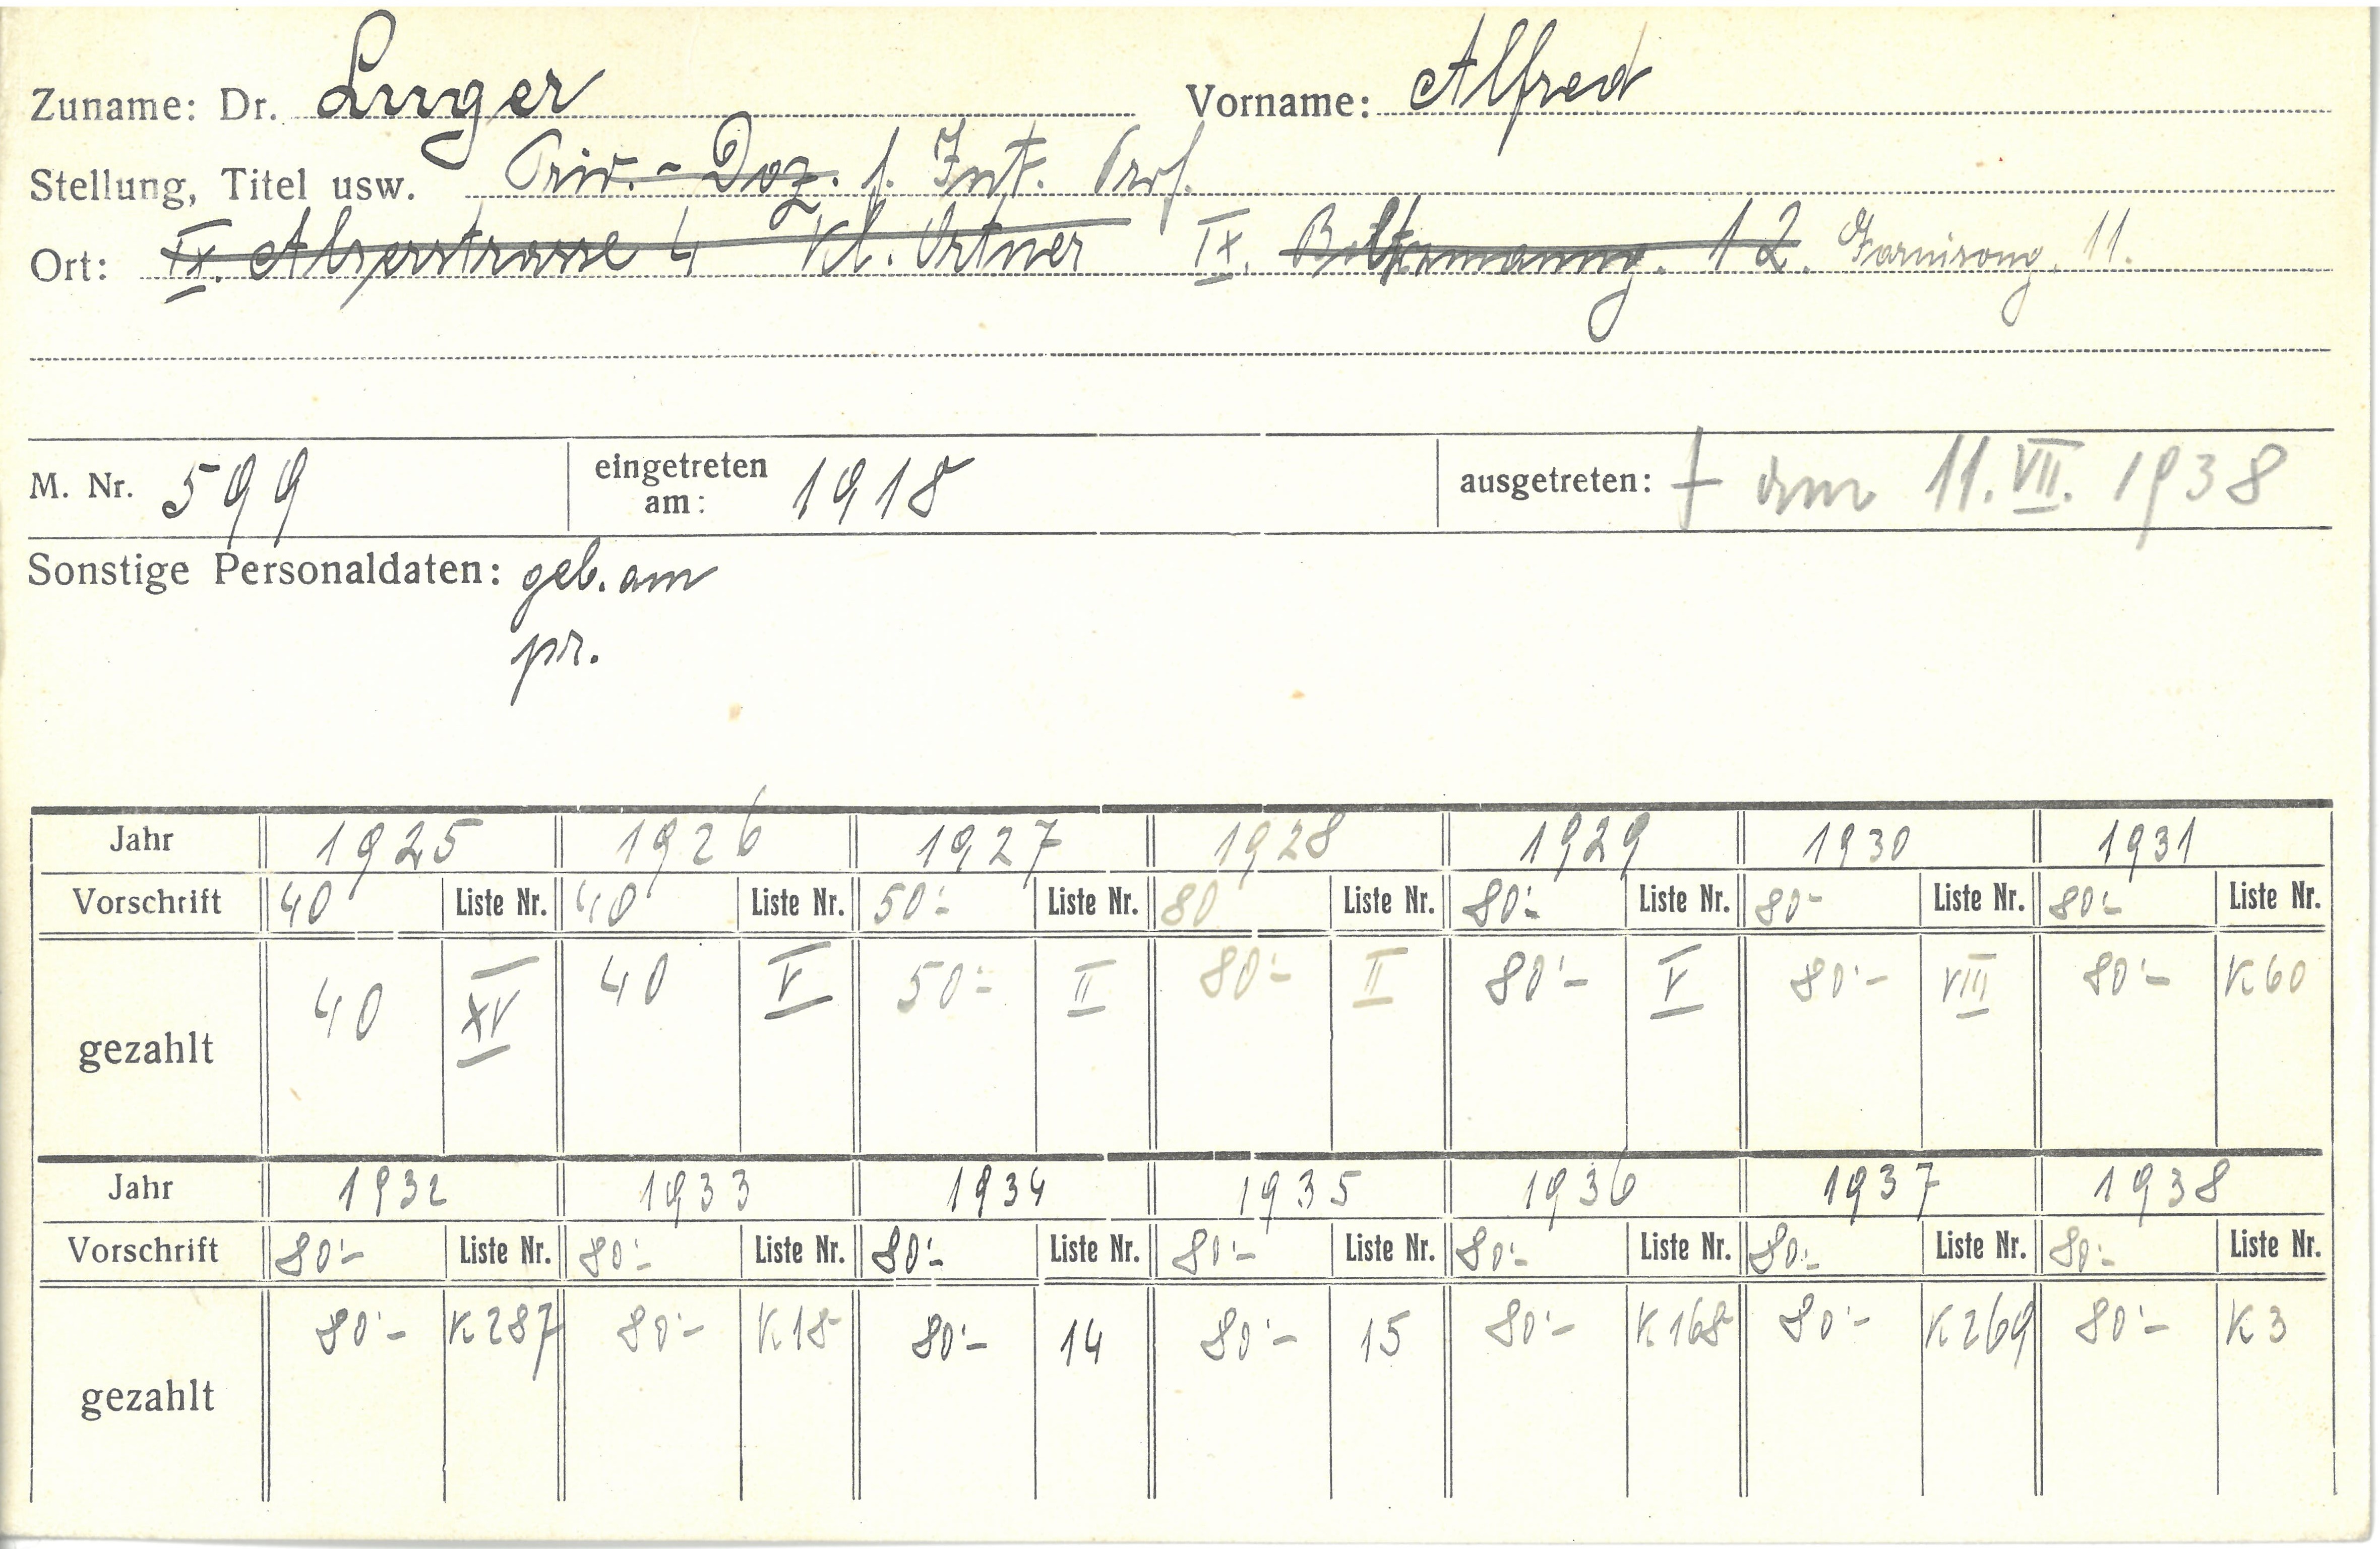 Zuname: Dr. Luger Vorname: Alfred
Stellung, Titel usw. Priv.-Doz. f. Int. Prof.
Ort: IX. Alserstrasse 4 Kl. Ortner IX. Boltzmanng. 12. Garnisong. 11.
M. Nr. 599 eingetreten am: 1918 ausgetreten: † am 11. VII. 1938
Sonstige Personaldaten: geb. am
pr.
Jahr 1925 1926 1927 1928 1929 1930 1931
Vorschrift 40 Liste Nr. 40 Liste Nr. 50·- Liste Nr. 80 Liste Nr. 80·- Liste Nr. 80- Liste Nr. 80·- Liste Nr.
gezahlt 40 XV 40 V 50·- II 80·- II 80·- V 80·- VIII 80·- K 60
Jahr 1932 1933 1934 1935 1936 1937 1938
Vorschrift 80·- Liste Nr. 80·- Liste Nr. 80·- Liste Nr. 80·- Liste Nr. 80·- Liste Nr. 80·- Liste Nr. 80·- Liste Nr.
gezahlt 80·- K 287 80·- K 18 80·- 14 80·- 15 80·- K 168 80·- K 269 80·- K 3